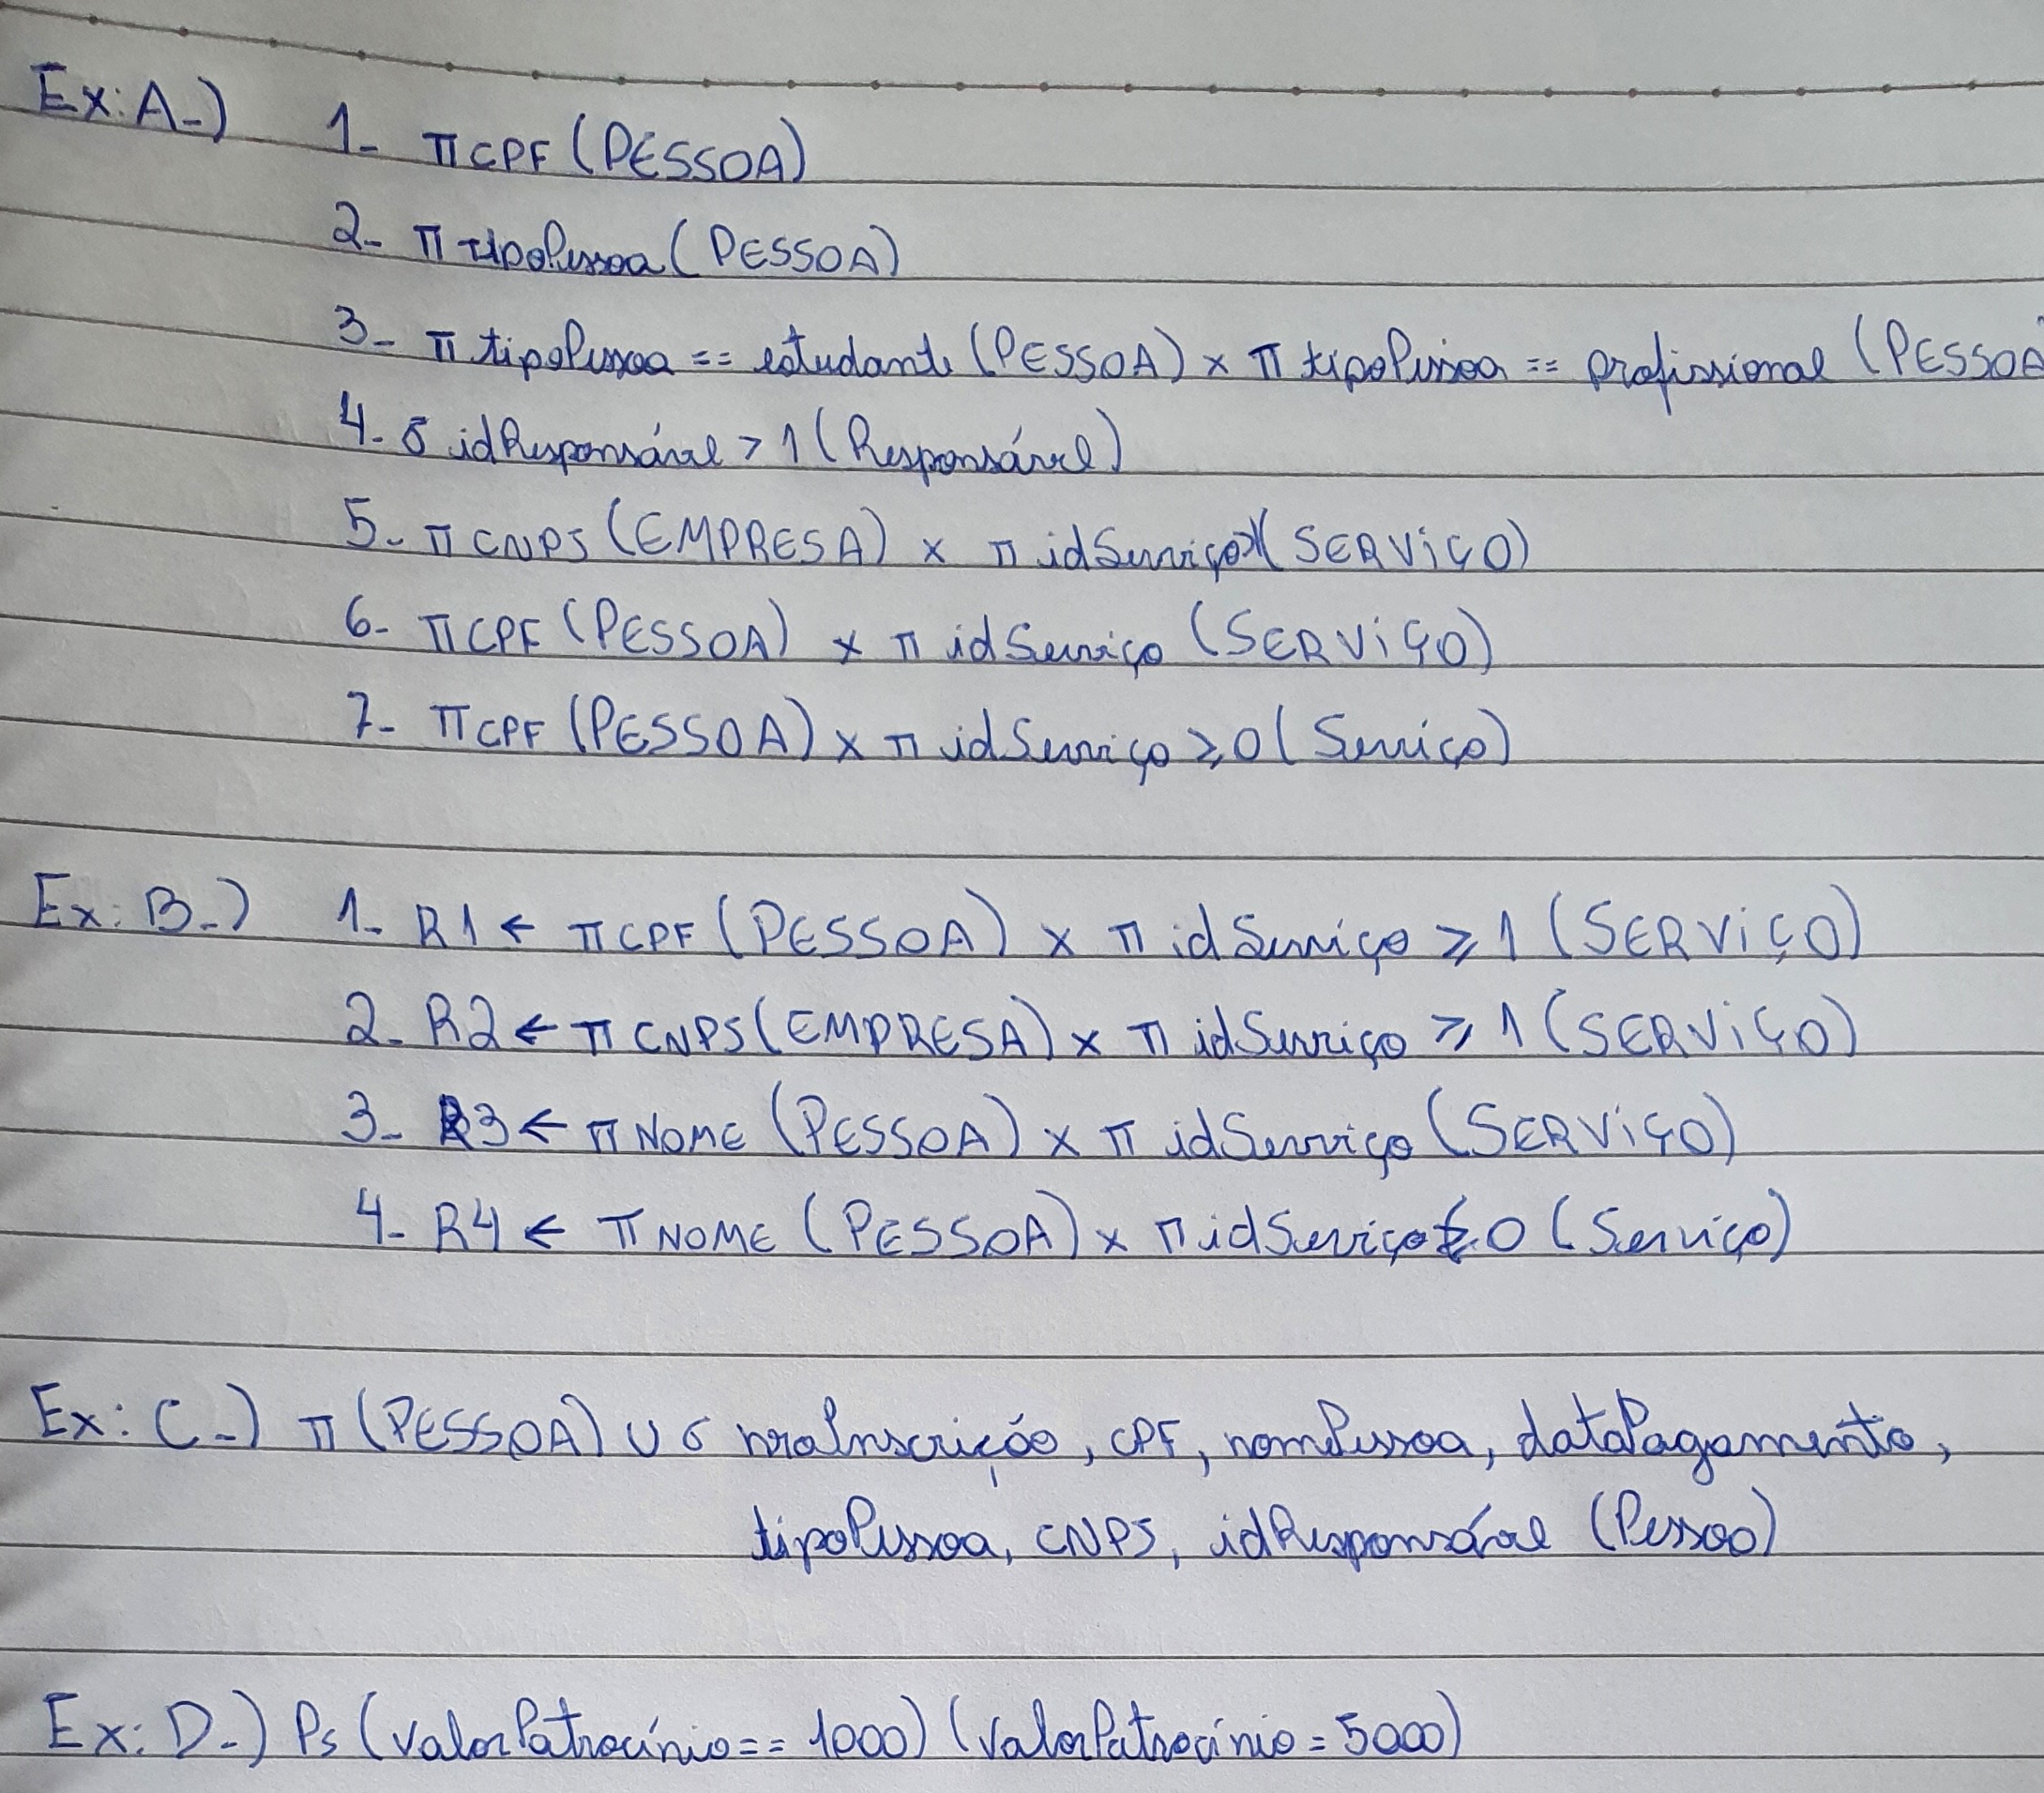 Ex: A-) 1- π CPF (PESSOA)
2- π tipoPessoa (PESSOA)
3- π tipoPessoa == estudante (PESSOA) x π tipoPessoa == profissional (PESSOA
4- σ idResponsável > 1 (Responsável)
5- π CNPJ (EMPRESA) x π idServiço (SERVIÇO)
6- π CPF (PESSOA) x π idServiço (SERVIÇO)
7- π CPF (PESSOA) x π idServiço ⩾ 0 (Serviço)
Ex: B-) 1- R1 ← π CPF (PESSOA) x π idServiço ⩾ 1 (SERVIÇO)
2- R2 ← π CNPJ (EMPRESA) x π idServiço ⩾ 1 (SERVIÇO)
3- R3 ← π NOME (PESSOA) x π idServiço (SERVIÇO)
4- R4 ← π NOME (PESSOA) x π idServiço ⩽ 0 (Serviço)
Ex: C-) π (PESSOA) U σ nroInscrição, CPF, nomePessoa, dataPagamento,
tipoPessoa, CNPJ, idResponsável (Pessoa)
Ex: D-) Ps (valorPatrocínio == 1000) (valorPatrocínio = 5000)